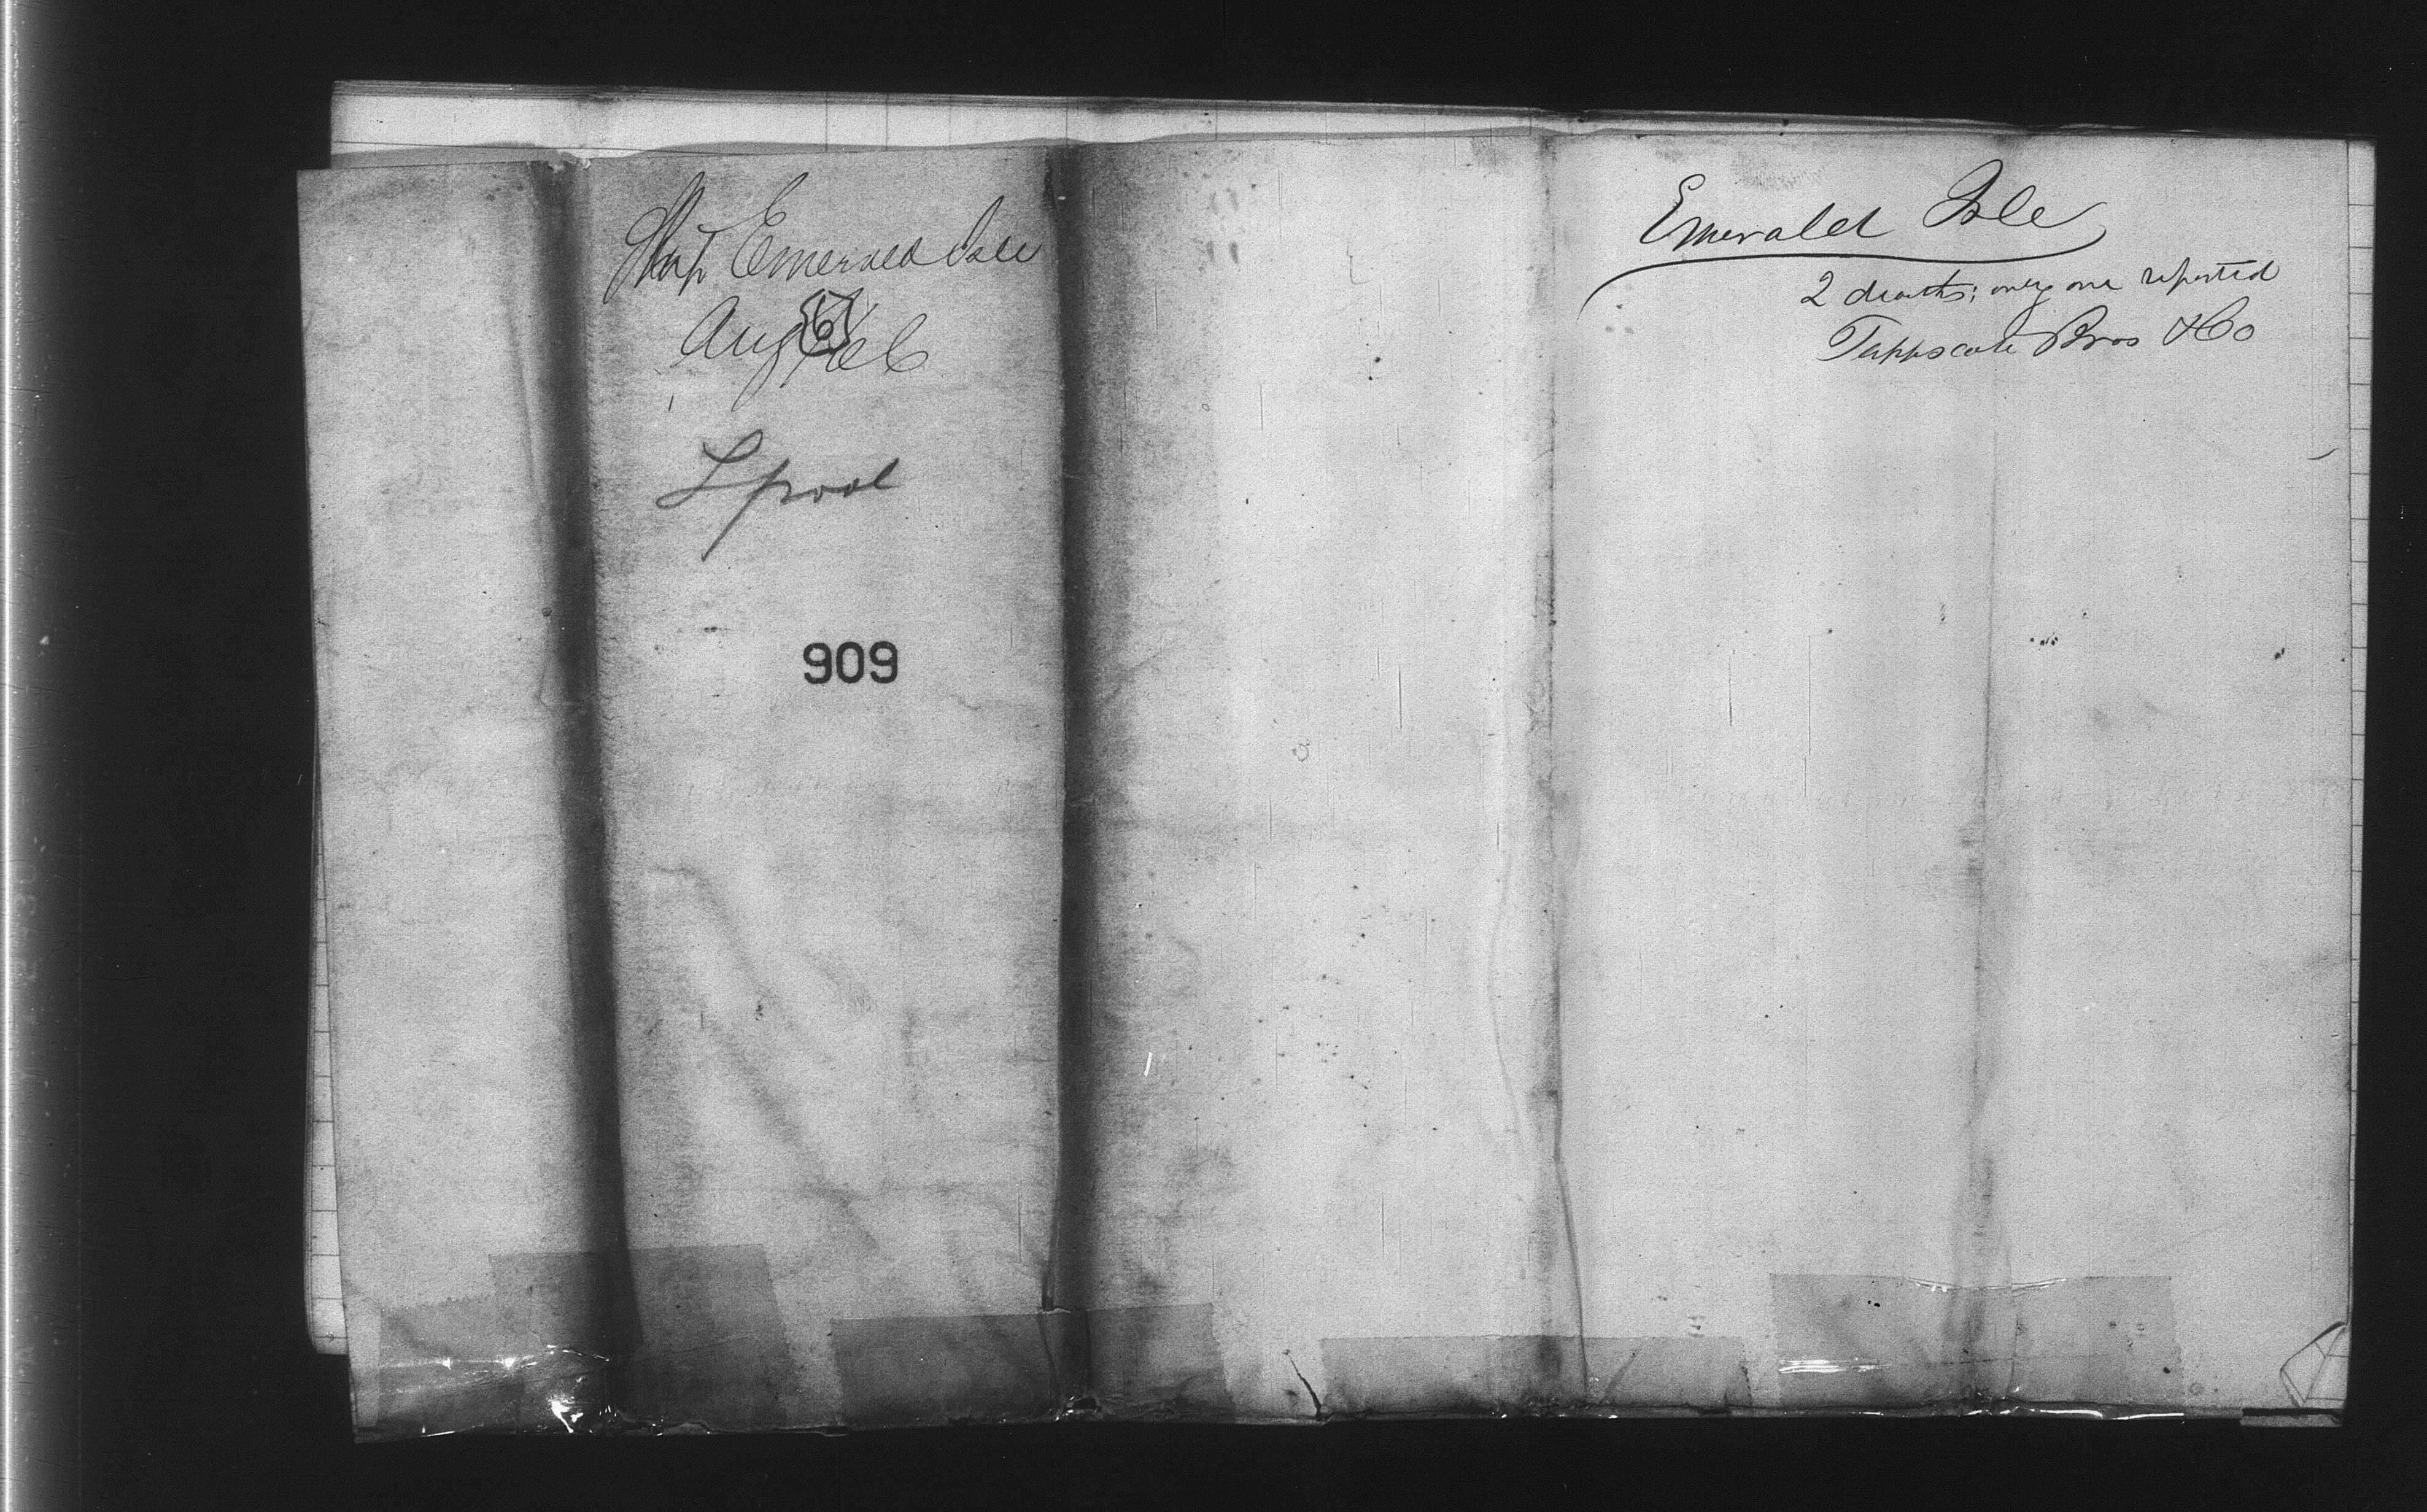 Ship Emerald Isle
Aug 6/66
Lpool
909
Emerald Isle
2 deaths; only one reported
Tappscott Bros & Co